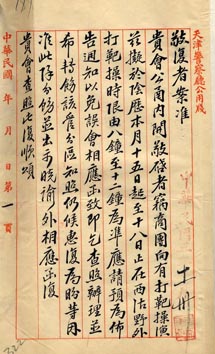 天津警察總公用牋
敬復者案准
貴會公函內開敬啓者窃商團向有打靶操演
茲擬於陰歷本月十五起至十八日止在西沽野外
打靶操時限由八鐘至十二鐘為準應請預為佈
告週知以免誤會相應函致即乞查照辦理並
希轉飭該管分區知照仍候惠復為盼等因
准此除分飭並出示曉諭外相應函復
貴會查照此復順頌
中華民國 年 月 日第 頁